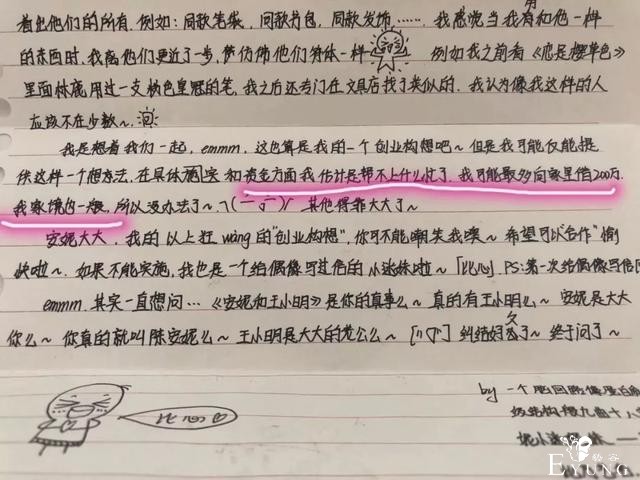 着出他们的所有.例如:同款笔袋,同款书包,同款发饰,……,我感觉当我有和他一样
的东西时,我离他们更近了一步,伊仿佛他们身体一样 例如我之前看《恋是樱草色》
里面林鹿用过一支橘色皇冠的笔,我之后还专门在文具店找了类似的.我认为像我这样的人
应该不在少数~.
我是想着我们一起,emmm,这也算是我的一个创业构想吧~但是我可能仅能提
供这样一个想办法,在具体落实和资金方面我估计是帮不上什么忙了.我可能最多向家里借200万.
我家境的一般,所以没办法了~. 其他得靠大大了~
安妮大大,我的以上狂wàng的"创业构想",你可不能嘲笑我噢~希望可以"合作"愉
快啦~.如果不能实施,我也是一个给偶像写过信的小迷妹啦~「比心」.PS:第一次给偶像写信
emmm.其实一直想问…《安妮和王小明》是你的真事么~真的有王小明么~安妮是大大
你么~你真的就叫陈安妮么~王小明是大大的老公么~ 纠结好久了~终于问了~
比心
by 一个脑回路像蛋白质
结构得九曲十八
妮小迷妹
EYUNG